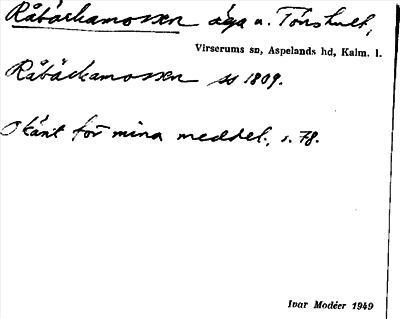 Råbäckamossen äga u. Törshult,
Virserums sn, Aspelands hd, Kalm. l.
Råbäckamossen ss 1809.
Okänt för mina meddel., s. 78.
Ivar Modéer 1949